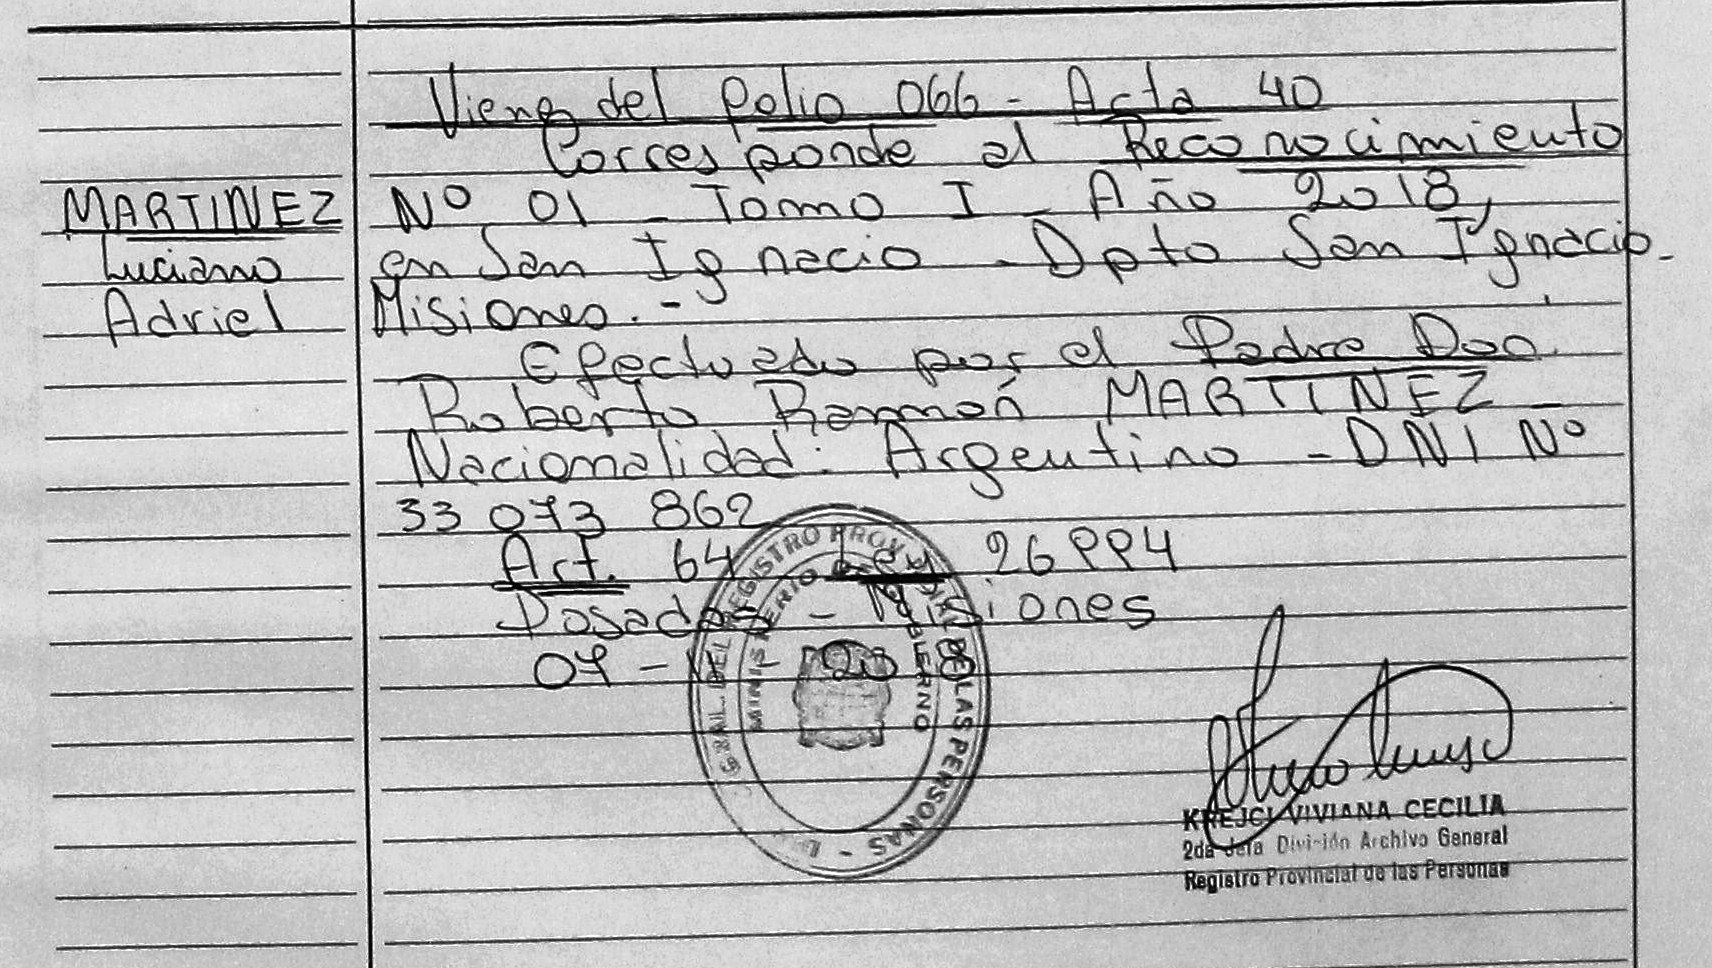 Viene del folio 066 - Acta 40
Corresponde al Reconocimiento
MARTINEZ
Luciano
Adriel
Nº 01 - Tomo I - Año 2018,
en San Ignacio - Dpto San Ignacio -
Misiones. -
Efectuado por el Padre Don
Roberto Ramón MARTINEZ -
Nacionalidad: Argentino - DNI Nº
33 073 862
Art. 64 Ley 26 994
Posadas - Misiones
07 - 11 -
REGISTRO PROVINCIAL DE LAS PERSONAS
MINISTERIO DE GOBIERNO
KREJCI VIVIANA CECILIA
2da Jefa División Archivo General
Registro Provincial de las Personas